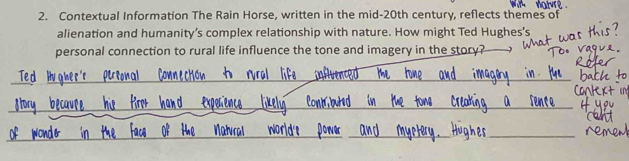 with nature.
2. Contextual Information The Rain Horse, written in the mid-20th century, reflects themes of
alienation and humanity's complex relationship with nature. How might Ted Hughes's
personal connection to rural life influence the tone and imagery in the story?
What was this?
Too vague.
Refer
back to
context in
if you
can't
remem
Ted Hughes's personal connection to rural life influenced the tone and imagery in the
story because his first hand experience likely contributed in the tone creating a sence
of wonder in the face of the natural world's power and mystery. Hughes